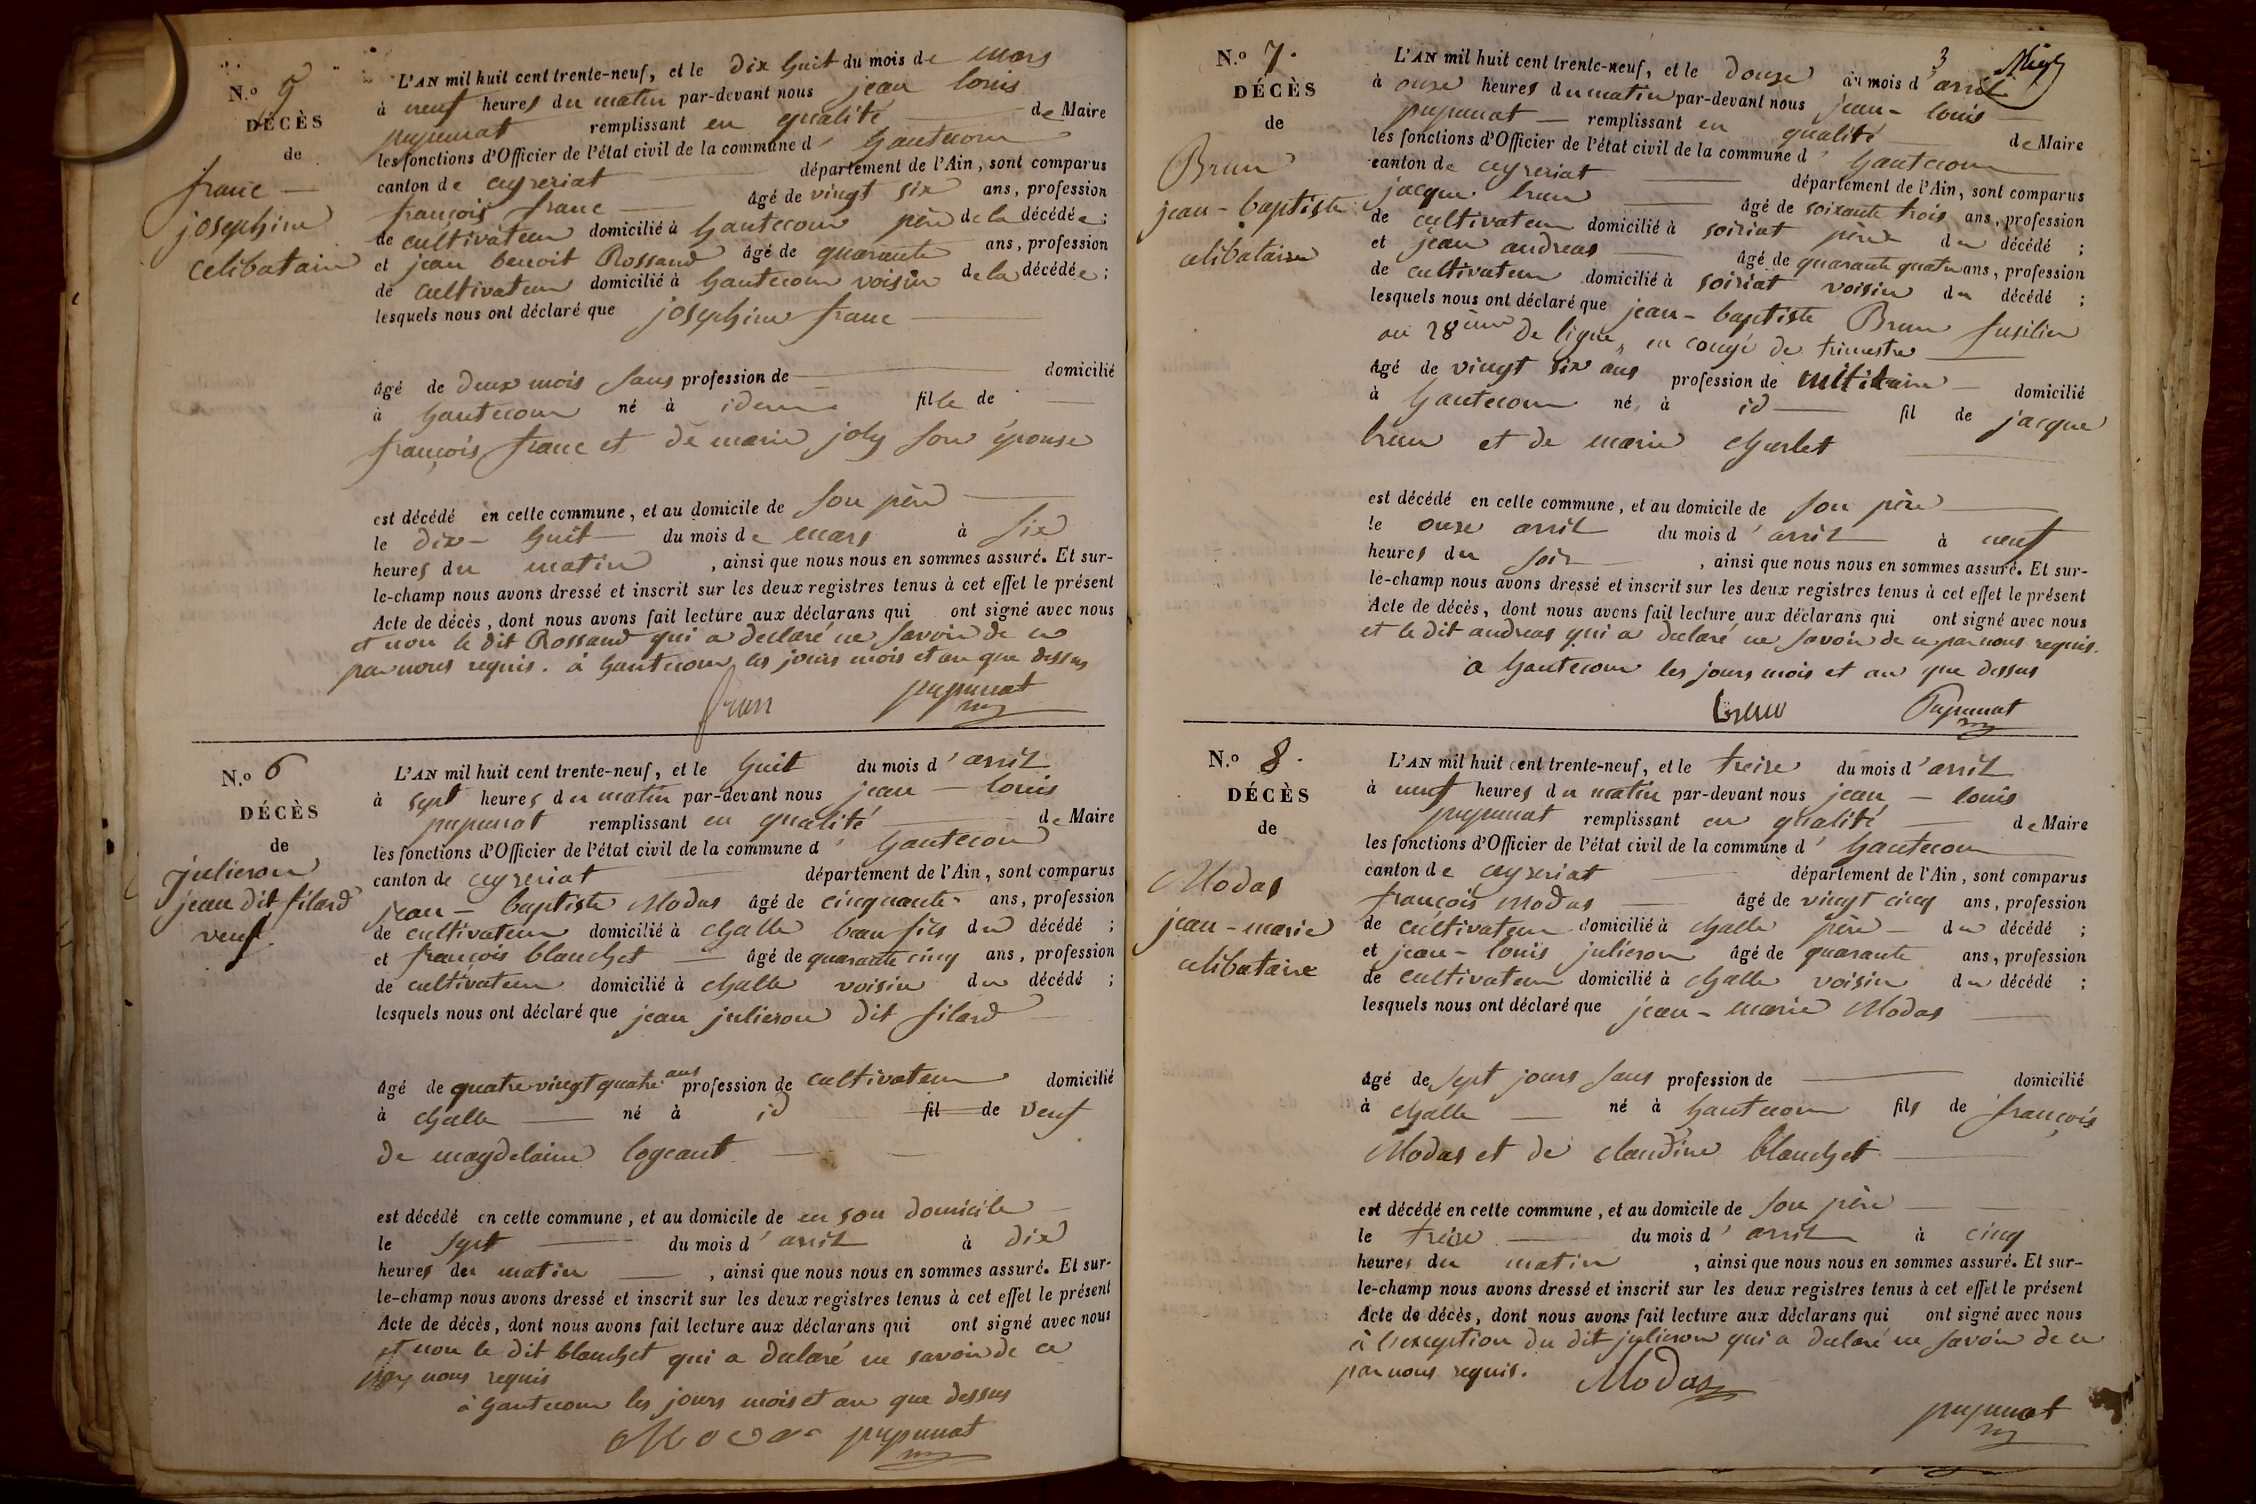 N.º 5
DÉCÈS
de
franc
josephine
celibataire
L'AN mil huit cent trente-neuf, et le dix huit du mois de mars
à neuf heures du matin par-devant nous jean louis
pupunat remplissant en qualité de Maire
les fonctions d'Officier de l'état civil de la commune d' hautecour
canton de ceyzeriat département de l'Ain, sont comparus
françois franc âgé de vingt six ans, profession
de cultivateur domicilié à hautecour père de la décédée ;
et jean benoit Rossand âgé de quarante ans, profession
de cultivateur domicilié à hautecour voisin de la décédée ;
lesquels nous ont déclaré que josephine franc
âgé de deux mois sans profession de domicilié
à hautecour né à idem fille de
françois franc et de marie joly son épouse
est décédé en celle commune, et au domicile de son père
le dix-huit du mois de mars à six
heures du matin, ainsi que nous nous en sommes assuré. Et sur-
le-champ nous avons dressé et inscrit sur les deux registres tenus à cet effet le présent
Acte de décès, dont nous avons fait lecture aux déclarans qui ont signé avec nous
et non le dit Rossand qui a declaré ne savoir de ce
par nous requis. à hautecour les jours mois et an que dessus
franc pupunat
N.º 6
DÉCÈS
de
julieron
jean dit filard
veuf
L'AN mil huit cent trente-neuf, et le huit du mois d'avril
à sept heures du matin par-devant nous jean - louis
pupunat remplissant en qualité de Maire
les fonctions d'Officier de l'état civil de la commune d' hautecour
canton de ceyzeriat département de l'Ain, sont comparus
jean - baptiste Modas âgé de cinquante ans, profession
de cultivateur domicilié à challe beau fils du décédé ;
et françois blanchet âgé de quarante cinq ans, profession
de cultivateur domicilié à challe voisin du décédé ;
lesquels nous ont déclaré que jean julieron dit filard
âgé de quatre vingt quatre ans profession de cultivateur domicilié
à challe né à id fil de veuf
de magdelaine logeant
est décédé en celle commune, et au domicile de en son domicile
le sept du mois d'avril à dix
heures du matin, ainsi que nous nous en sommes assuré. Et sur-
le-champ nous avons dressé et inscrit sur les deux registres tenus à cet effet le présent
Acte de décès, dont nous avons fait lecture aux déclarans qui ont signé avec nous
et non le dit blanchet qui a declaré ne savoir de ce
par nous requis
à hautecour les jours mois et an que dessus
Modas pupunat
3
N.º 7.
DÉCÈS
de
Brun
jean - baptiste
celibataire
L'AN mil huit cent trente-neuf, et le douze du mois d'avril
à onze heures du matin par-devant nous jean - louis
pupunat remplissant en qualité de Maire
les fonctions d'Officier de l'état civil de la commune d' hautecour
canton de ceyzeriat département de l'Ain, sont comparus
jacque brun âgé de soixante trois ans, profession
de cultivateur domicilié à soiriat père du décédé ;
et jean andreas âgé de quarante quatre ans, profession
de cultivateur domicilié à soiriat voisin du décédé ;
lesquels nous ont déclaré que jean - baptiste Brun fusilier
au 28ème de ligne, en congé de trimestre
âgé de vingt six ans profession de militaire domicilié
à hautecour né à id fil de jacque
brun et de marie charlet
est décédé en celle commune, et au domicile de son père
le onze avril du mois d'avril à neuf
heures du soir, ainsi que nous nous en sommes assuré. Et sur-
le-champ nous avons dressé et inscrit sur les deux registres tenus à cet effet le présent
Acte de décès, dont nous avons fait lecture aux déclarans qui ont signé avec nous
et le dit andreas qui a declaré ne savoir de ce par nous requis.
a hautecour les jours mois et an que dessus
brun Pupunat
N.º 8.
DÉCÈS
de
Modas
jean - marie
celibataire
L'AN mil huit cent trente-neuf, et le treize du mois d'avril
à neuf heures du matin par-devant nous jean - louis
pupunat remplissant en qualité de Maire
les fonctions d'Officier de l'état civil de la commune d' hautecour
canton de ceyzeriat département de l'Ain, sont comparus
françois Modas âgé de vingt cinq ans, profession
de cultivateur domicilié à challe père du décédé ;
et jean - louis julieron âgé de quarante ans, profession
de cultivateur domicilié à challe voisin du décédé ;
lesquels nous ont déclaré que jean - marie Modas
âgé de sept jours sans profession de domicilié
à challe né à hautecour fils de françois
Modas et de claudine blanchet
est décédé en celle commune, et au domicile de son père
le treize du mois d'avril à cinq
heures du matin, ainsi que nous nous en sommes assuré. Et sur-
le-champ nous avons dressé et inscrit sur les deux registres tenus à cet effet le présent
Acte de décès, dont nous avons fait lecture aux déclarans qui ont signé avec nous
à l'exception du dit julieron qui a declaré ne savoir de ce
par nous requis.
Modas
pupunat